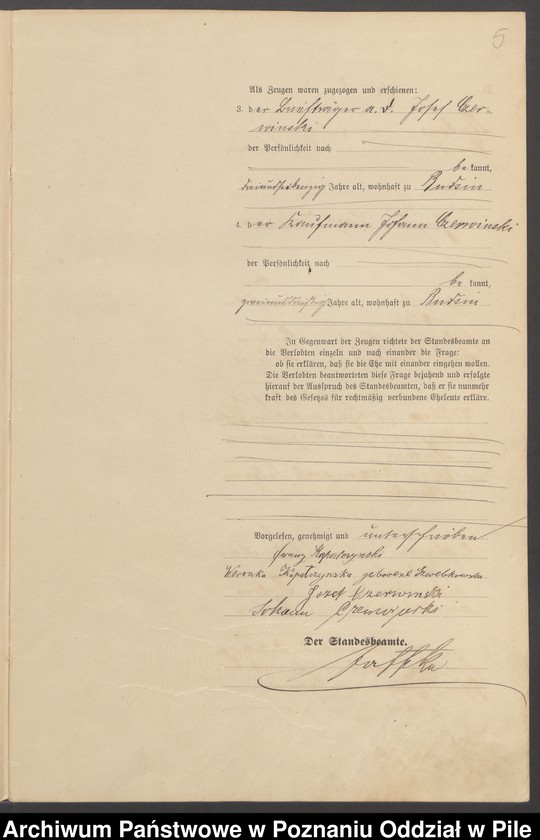 5
Als Zeugen waren zugezogen und erschienen:
3. der Briefträger a. D. Josef Czer-
winski
der Persönlichkeit nach
be kannt,
dreiundsiebenzig Jahre alt, wohnhaft zu Budsin
4. der Kaufmann Johann Czerwinski
der Persönlichkeit nach
be kannt,
zweiunddreißig Jahre alt, wohnhaft zu Budsin
In Gegenwart der Zeugen richtete der Standesbeamte an
die Verlobten einzeln und nach einander die Frage:
ob sie erklären, daß sie die Ehe mit einander eingehen wollen.
Die Verlobten beantworteten diese Frage bejahend und erfolgte
hierauf der Ausspruch des Standesbeamten, daß er sie nunmehr
kraft des Gesetzes für rechtmäßig verbundene Eheleute erkläre.
Vorgelesen, genehmigt und unterschrieben
Franz
geborene
Jozef Czerwinski
Johann
Der Standesbeamte.
Archiwum Państwowe w Poznaniu Oddział w Pile